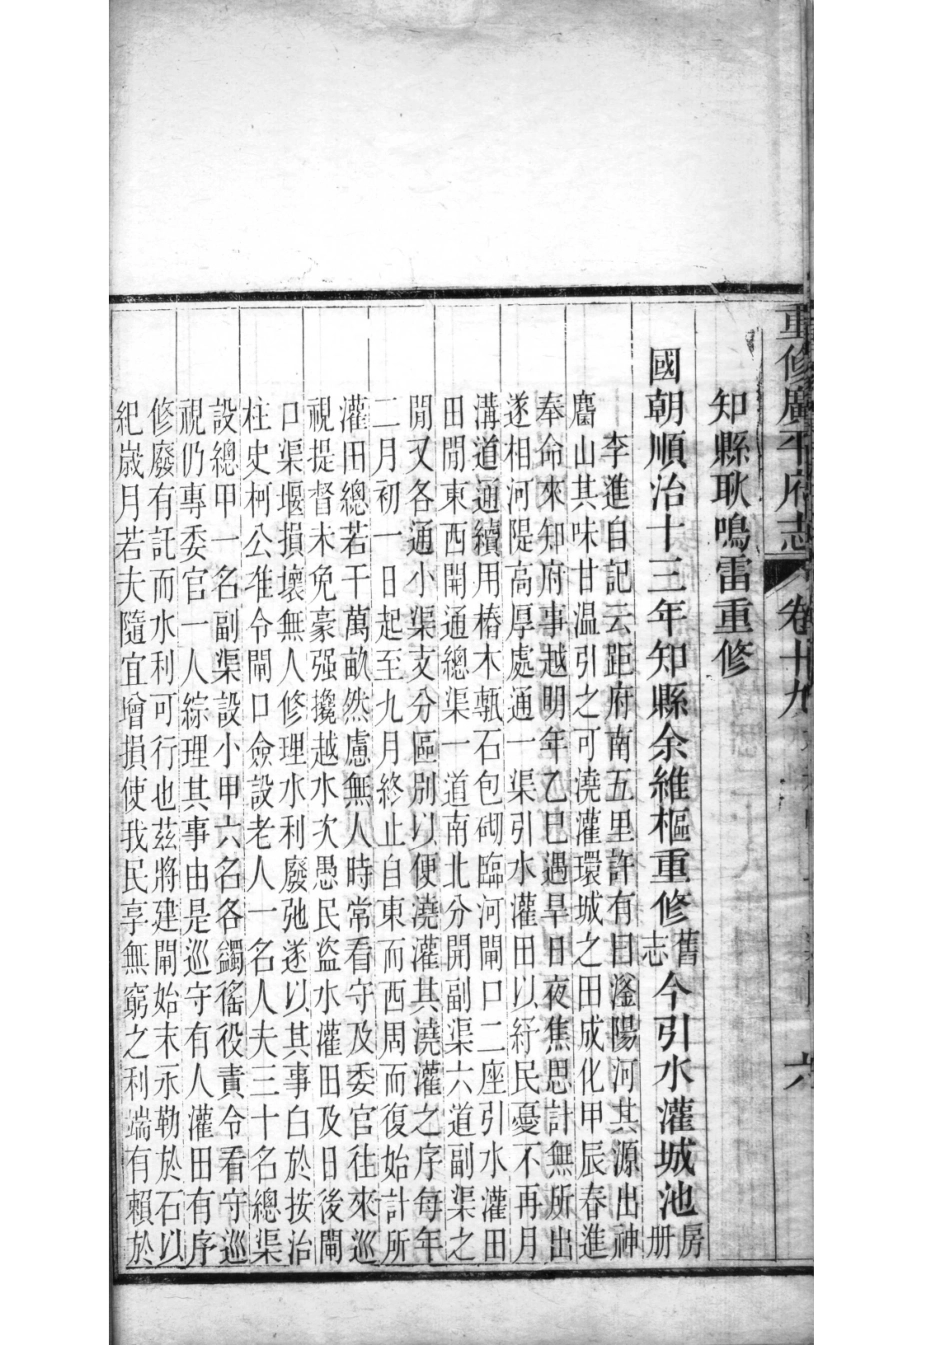 重修廣平府志 卷卄九 六
知縣耿鳴雷重修
國朝順治十三年知縣余維樞重修舊志今引水灌城池房册
李進自記云距府南五里許有目滏陽河其源出神
麕山其味甘温引之可澆灌環城之田成化甲辰春進
奉命來知府事越明年乙巳遇旱日夜焦思計無所出
遂相河隄高厚處通一渠引水灌田以紓民憂不再月
溝道通續用樁木甎石包砌臨河閘口二座引水灌田
田間東西開通總渠一道南北分開副渠六道副渠之
閒又各通小渠支分區别以便澆灌其澆灌之序每年
二月初一日起至九月終止自東而西周而復始計所
灌田總若干萬畝然慮無人時常看守及委官往來巡
視提督未免豪强攙越水次愚民盗水灌田及日後閘
口渠堰損壞無人修理水利廢弛遂以其事白於按治
柱史柯公准令閘口僉設老人一名人夫三十名總渠
設總甲一名副渠設小甲六名各蠲徭役責令看守巡
視仍專委官一人綜理其事由是巡守有人灌田有序
修廢有託而水利可行也茲將建閘始末永勒於石以
紀歲月若夫隨宜增損使我民享無窮之利端有賴於